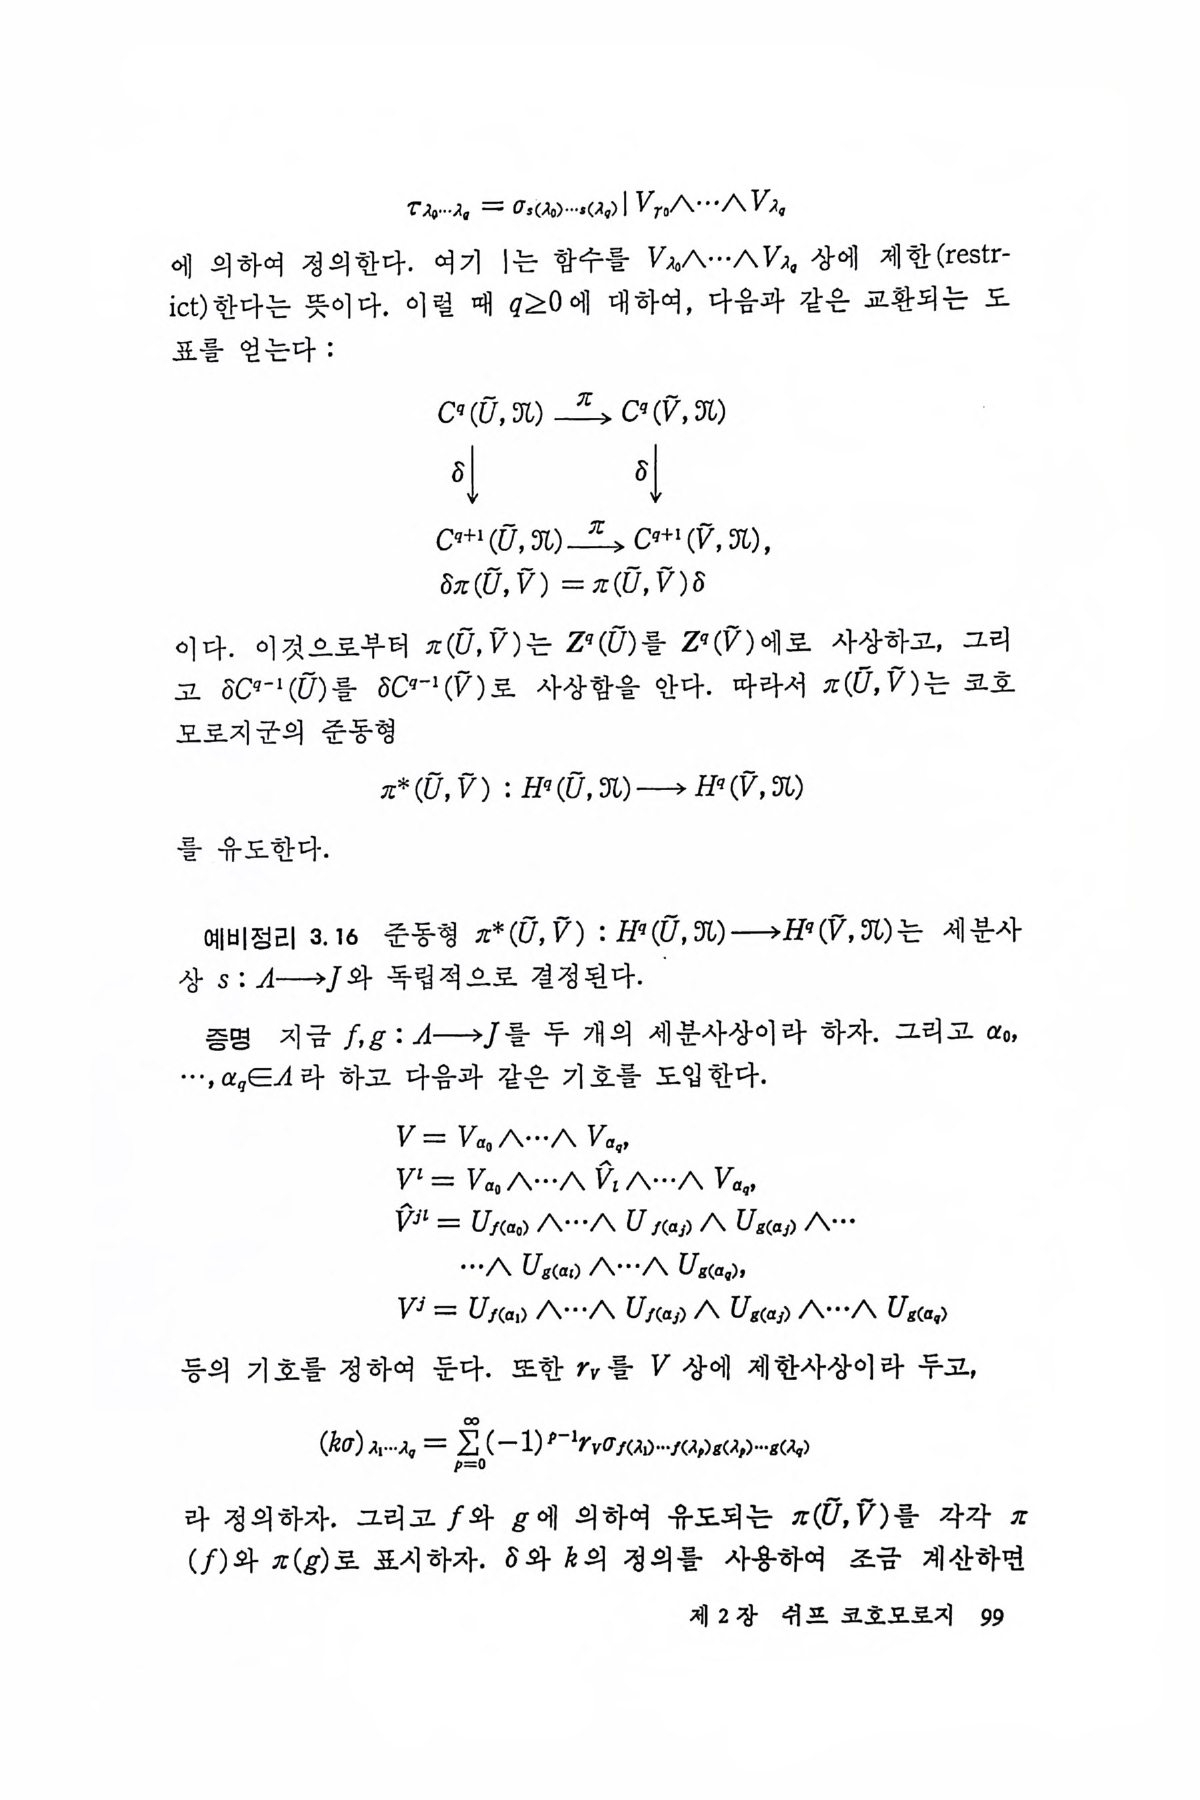 τ_{λ₀⋯λ_q} = σ_{s(λ₀)⋯s(λ_q)} | V_{γ₀}∧⋯∧V_{λ_q}
에 의하여 정의한다. 여기 |는 함수를 V_{λ₀}∧⋯∧V_{λ_q} 상에 제한(restr-
ict)한다는 뜻이다. 이럴 때 q≥0에 대하여, 다음과 같은 교환되는 도
표를 얻는다 :
C^q(Ũ, 𝔑) —π→ C^q(Ṽ, 𝔑)
δ↓ δ↓
C^{q+1}(Ũ, 𝔑) —π→ C^{q+1}(Ṽ, 𝔑),
δπ(Ũ, Ṽ) = π(Ũ, Ṽ)δ
이다. 이것으로부터 π(Ũ, Ṽ)는 Z^q(Ũ)를 Z^q(Ṽ)에로 사상하고, 그리
고 δC^{q-1}(Ũ)를 δC^{q-1}(Ṽ)로 사상함을 안다. 따라서 π(Ũ, Ṽ)는 코호
모로지군의 준동형
π*(Ũ, Ṽ) : H^q(Ũ, 𝔑)⟶ H^q(Ṽ, 𝔑)
를 유도한다.
예비정리 3.16 준동형 π*(Ũ, Ṽ) : H^q(Ũ, 𝔑)⟶H^q(Ṽ, 𝔑)는 세분사
상 s : Λ⟶J와 독립적으로 결정된다.
증명 지금 f, g : Λ⟶J를 두 개의 세분사상이라 하자. 그리고 α₀,
⋯, α_q∈Λ라 하고 다음과 같은 기호를 도입한다.
V = V_{α₀}∧⋯∧ V_{α_q},
V^l = V_{α₀}∧⋯∧ V̂_l ∧⋯∧ V_{α_q},
V̂^{jl} = U_{f(α₀)} ∧⋯∧ U_{f(α_j)} ∧ U_{g(α_j)} ∧⋯
⋯∧ U_{g(α_l)} ∧⋯∧ U_{g(α_q)},
V^j = U_{f(α₁)} ∧⋯∧ U_{f(α_j)} ∧ U_{g(α_j)} ∧⋯∧ U_{g(α_q)}
등의 기호를 정하여 둔다. 또한 r_V를 V 상에 제한사상이라 두고,
(kσ)_{λ₁⋯λ_q} = ∑_{p=0}^{∞}(−1)^{p−1}r_Vσ_{f(λ₁)⋯f(λ_p)g(λ_p)⋯g(λ_q)}
라 정의하자. 그리고 f와 g에 의하여 유도되는 π(Ũ, Ṽ)를 각각 π
(f)와 π(g)로 표시하자. δ와 k의 정의를 사용하여 조금 계산하면
제 2 장 쉬프 코호모로지 99